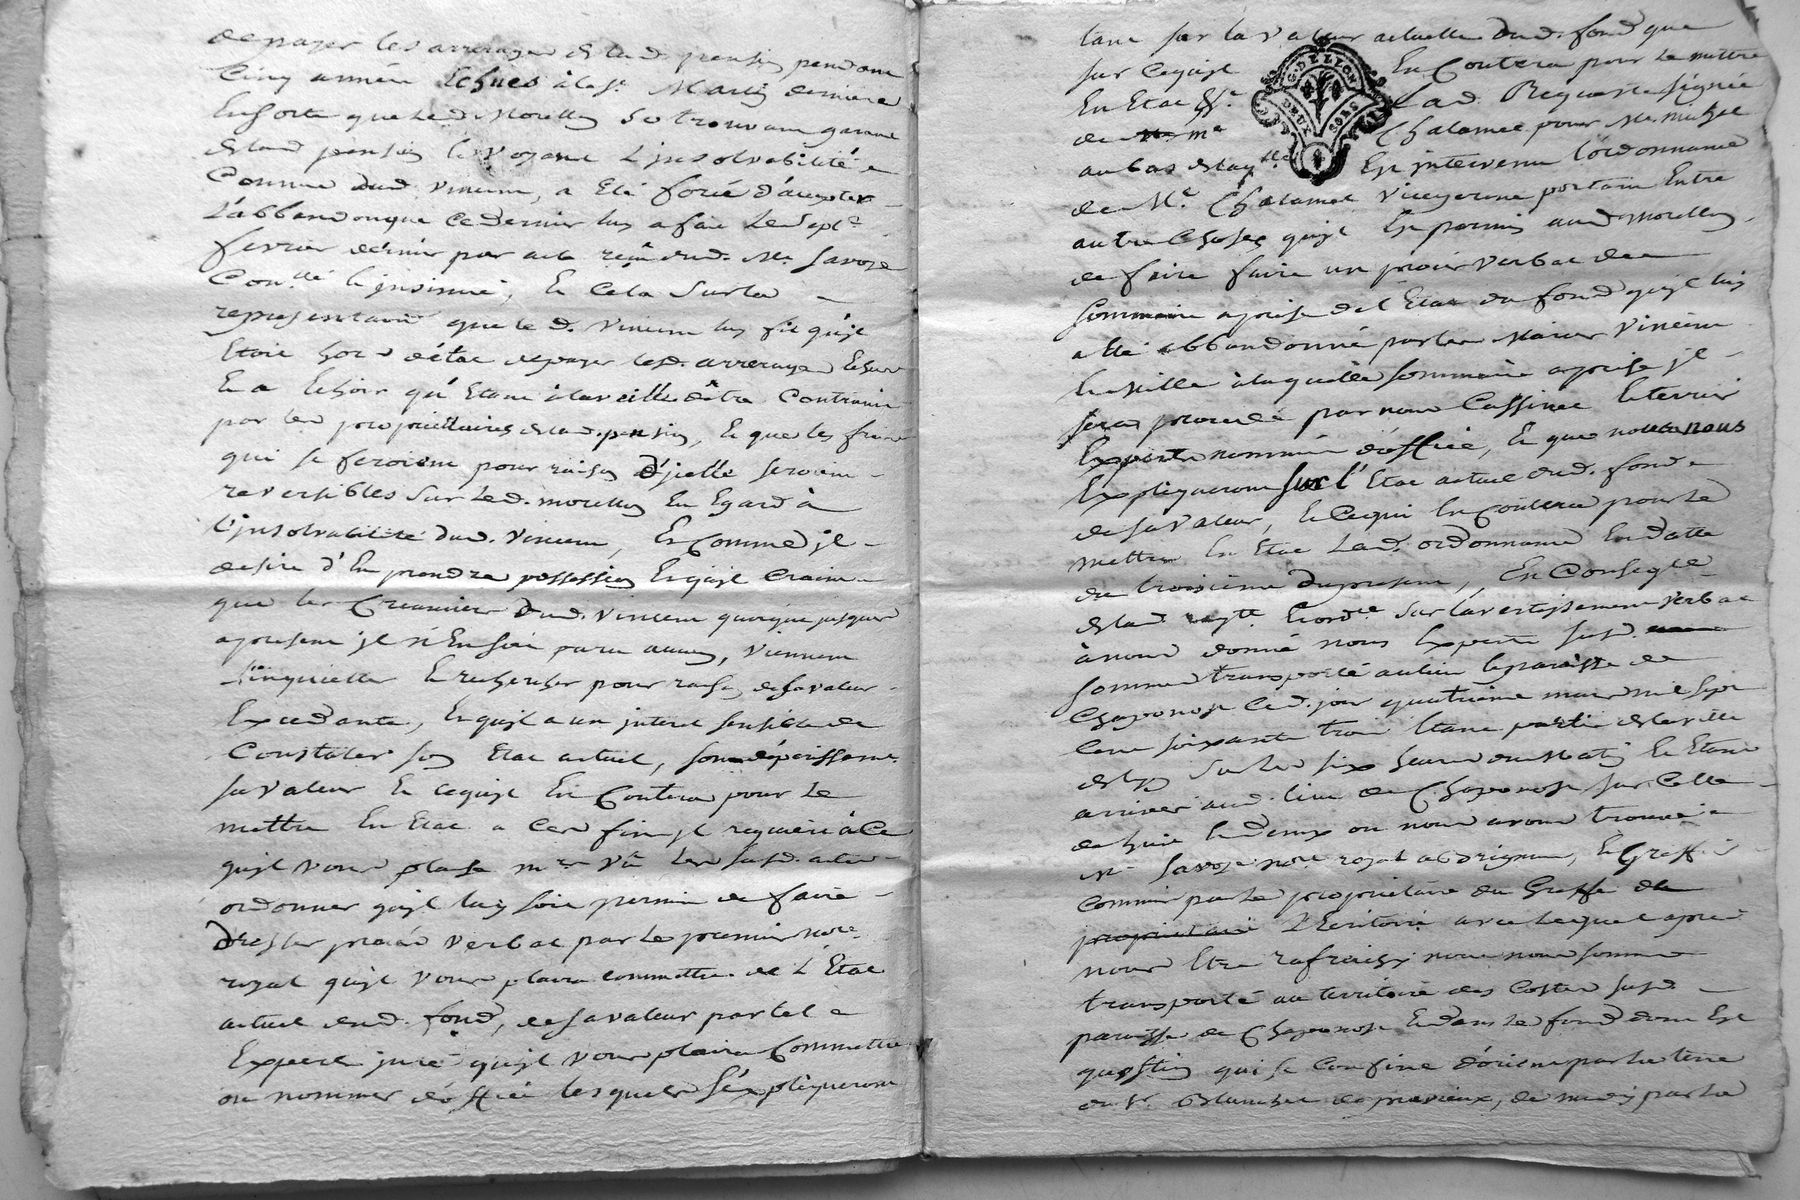 de payer les arrerages de lad. pension pendant
Cinq années Echues à la st. Martin derniere
Ensorte que led. Morellon se trouvant garant
de lad. pension & voyant L'insolvabilité
Connue dud. Vincent, a Eté forcé d'accepter
L'abbandon que ce dernier luy a fait Le sept
fevrier dernier par acte reçû dud. Me. Savoye
Con.llé & insinué, Et cela sur la
representation que le d. Vincent luy fit qu'il
Etoit hors d'état de payer lesd. arrerages Echus
Et a Echoir qu'Etant à la veille d'être Contraint
par les proprietaires de lad. pension, Et que les frais
qui se feroient pour raison d'jcelle seroient
reversibles sur led. morellon En Egard à
L'jnsolvabilité dud. Vincent, Et Comme jl
desire d'En prendre possession Et qu'jl Craint
que les Creanciers dud. Vincent quoique jusques
apresent jl n'En soit paru aucun, viennent
L'inquietter & rechercher pour raison de sa valeur
Excedante, Et qu'jl a un jnteret sensible de
Constater son Etat actuel, son deperissement
sa valeur Et cequjl En Coutera pour le
mettre En Etat a ces fins jl requiert à Ce
qujl vous plaise mrs. vû les susd. actes
ordonner qujl luy soit permis de faire
dresser procès verbal par le premier nore.
royal qujl vous plaira commettre de L'Etat
actuel dud. fond, de sa valeur par tel
Expert juré qujl vous plaira Commettre
ou nommer d'office lesquels s'expliqueront
tant sur la valeur actuelle dud. fond que
sur Cequjl En Coutera pour le mettre
En Etat &c. Lad. Requete signée
de me Chalamel pour Me.
au bas de laqlle. Est jntervenu L'ordonnance
de Mr. Chalamel Vicegerent portant Entre
autre Choses qujl Est permis aud. Morellon
de faire faire un procès verbal de
sommaire aprise de l'Etat du fond qujl luy
a Eté abbandonné par les Mariés Vincent
& Mille à laquelle sommaire aprise jl
sera procedé par nous Cassinel & terrier
Experts nommés d'office, Et que nous nous
Expliquerons sur l'Etat actuel dud. fond
de sa valeur, Et Cequi En Coutera pour le
mettre En Etat Lad. ordonnance En datte
du troisième du present, En Conseqce.
de lad. reqte. & ordce. sur l'avertissement verbal
à nous donné nous Experts susd.
sommes transporté au lieu & paroisse de
Chaponost Ced. jour quatrième mars mil sept
Cent soixante trois Etant partis de la ville
de Lyon sur les six heures du Matin & Etant
arrivés aud. lieu de Chaponost sur Celle
de huit Et demy ou nous avons trouvé
Me. Savoye nore. royal a Brignais, & Greffier
Commis par le proprietaire du Greffe de
proprietaire L'Ecritoire avec lequel aprés
nous Etre rafraichy nous nous sommes
transporté au territoire des Costes susd.
paroisse de Chaponost Et dans le fond dont Est
question qui se Confine d'orient par la terre
du Sr. Blanchet de pravieux, de midy par la
G. DE LYON
DEUX SOLS